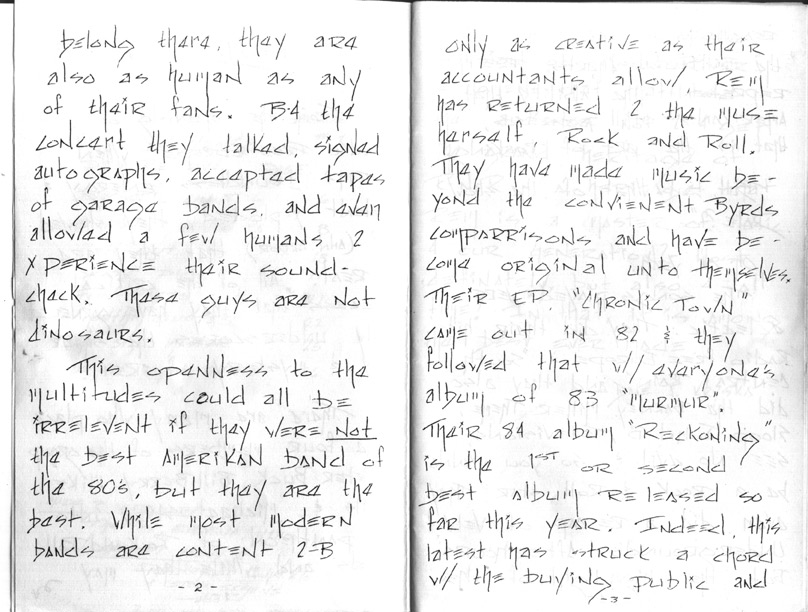 belong there, they are
also as human as any
of their fans. B-4 the
concert they talked, signed
autographs, accepted tapes
of garage bands, and even
allowed a few humans 2
XPERIENCE their sound-
check. These guys are not
dinosaurs.
This openness to the
multitudes could all BE
IRRELEVENT if they WERE NOT
the BEST AMERIKAN BAND of
the 80's, but they are the
best. While most modern
bands are content 2-B
- 2 -
only as CREATIVE as their
accountants allow, REM
has RETURNED 2 the MUSE
herself, Rock and Roll.
They have made music be-
yond the CONVIENENT Byrds
comparrisons and have be-
come original unto themselves.
Their EP, "Chronic Town"
came out in 82 & they
followed that w/ everyone's
album of 83 "MURMUR".
Their 84 album "RECKONING"
is the 1ST OR second
best album RELEASED so
far this YEAR. Indeed, this
latest has struck a chord
w/ the buying public and
- 3 -